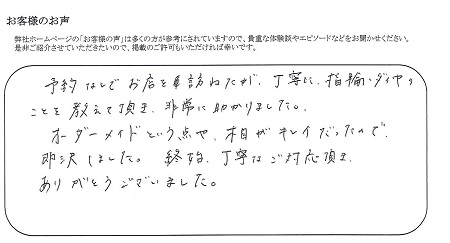 お客様のお声
弊社ホームページの「お客様の声」は多くの方が参考にされていますので、貴重な体験談やエピソードなどをお聞かせください。
是非ご紹介させていただきたいので、掲載のご許可もいただければ幸いです。
予約なしでお店を訪ねたが、丁寧に、指輪・ダイヤの
ことを教えて頂き、非常に助かりました。
オーダーメイドという点や、木目がキレイだったので、
即決しました。 終始、丁寧なご対応頂き、
ありがとうございました。